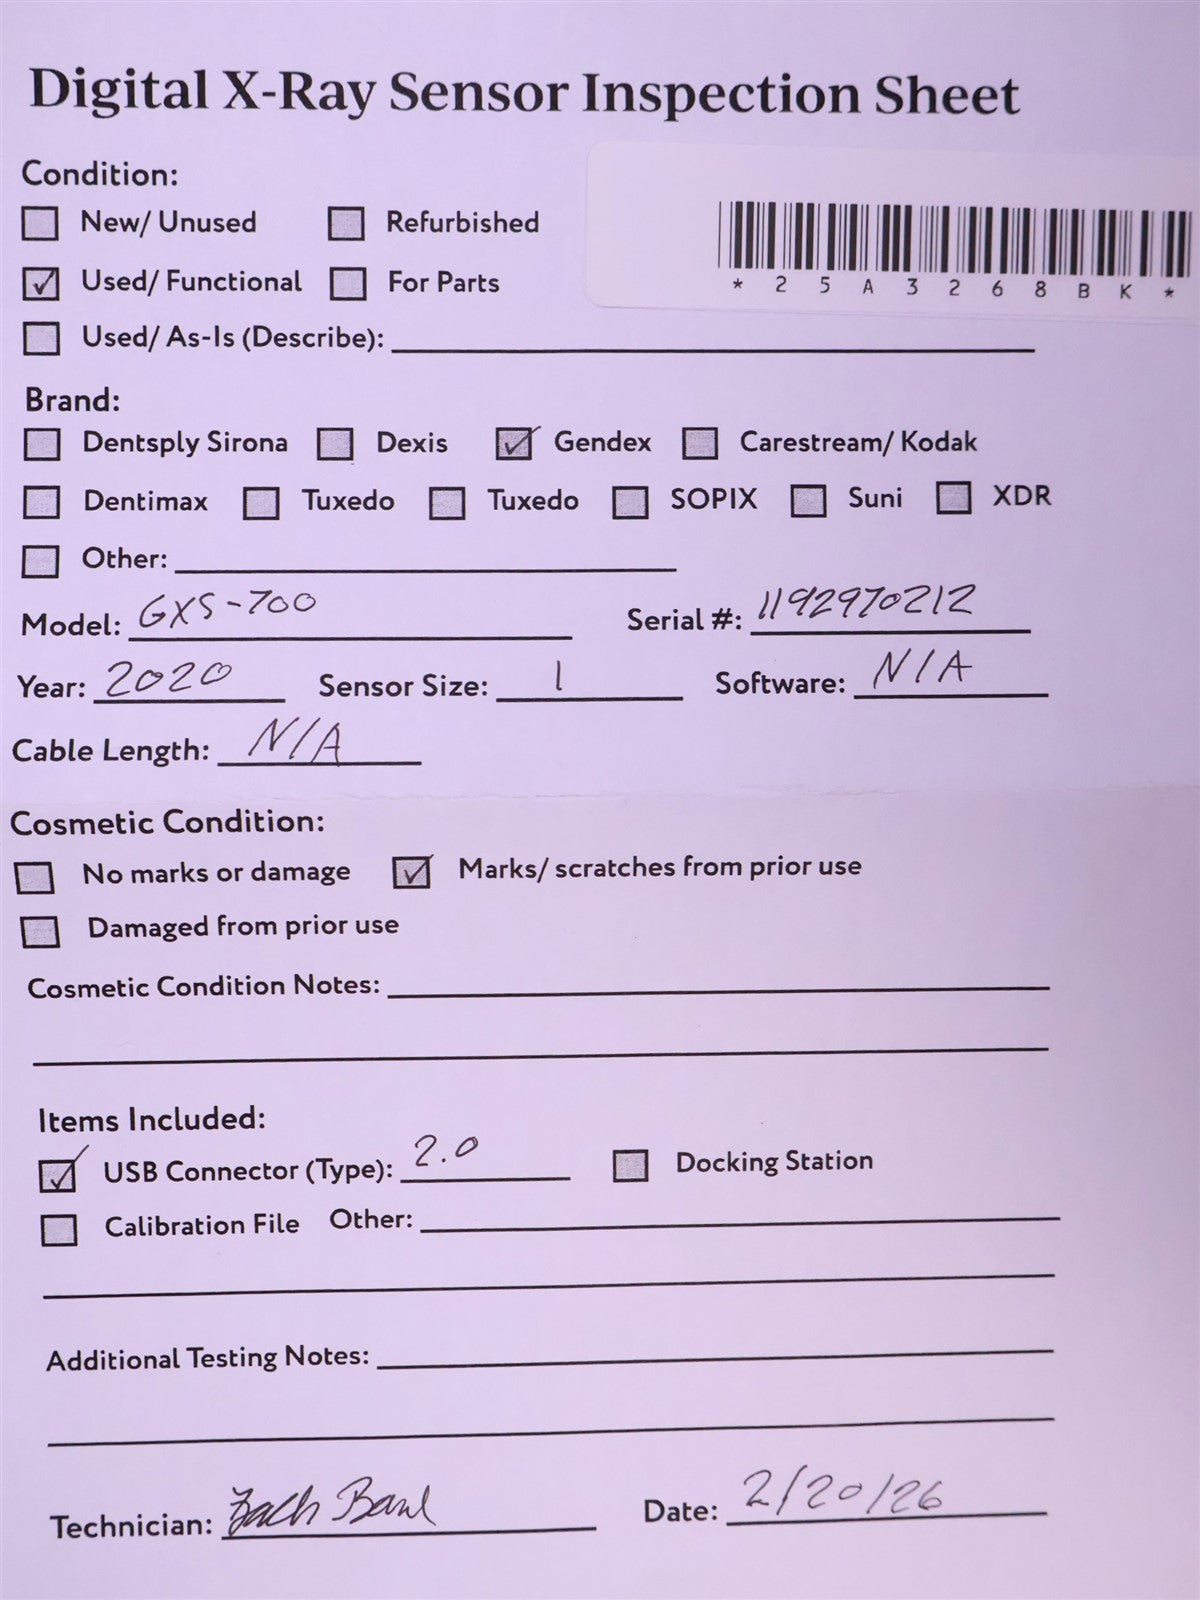 Digital X-Ray Sensor Inspection Sheet
Condition:
New/ Unused Refurbished
*25A3268BK*
Used/ Functional For Parts
Used/ As-Is (Describe):
Brand:
Dentsply Sirona Dexis Gendex Carestream/ Kodak
Dentimax Tuxedo Tuxedo SOPIX Suni XDR
Other:
Model: GXS-700 Serial #: 1192970212
Year: 2020 Sensor Size: 1 Software: N/A
Cable Length: N/A
Cosmetic Condition:
No marks or damage Marks/ scratches from prior use
Damaged from prior use
Cosmetic Condition Notes:
Items Included:
USB Connector (Type): 2.0 Docking Station
Calibration File Other:
Additional Testing Notes:
Technician: Zach Date: 2/20/26